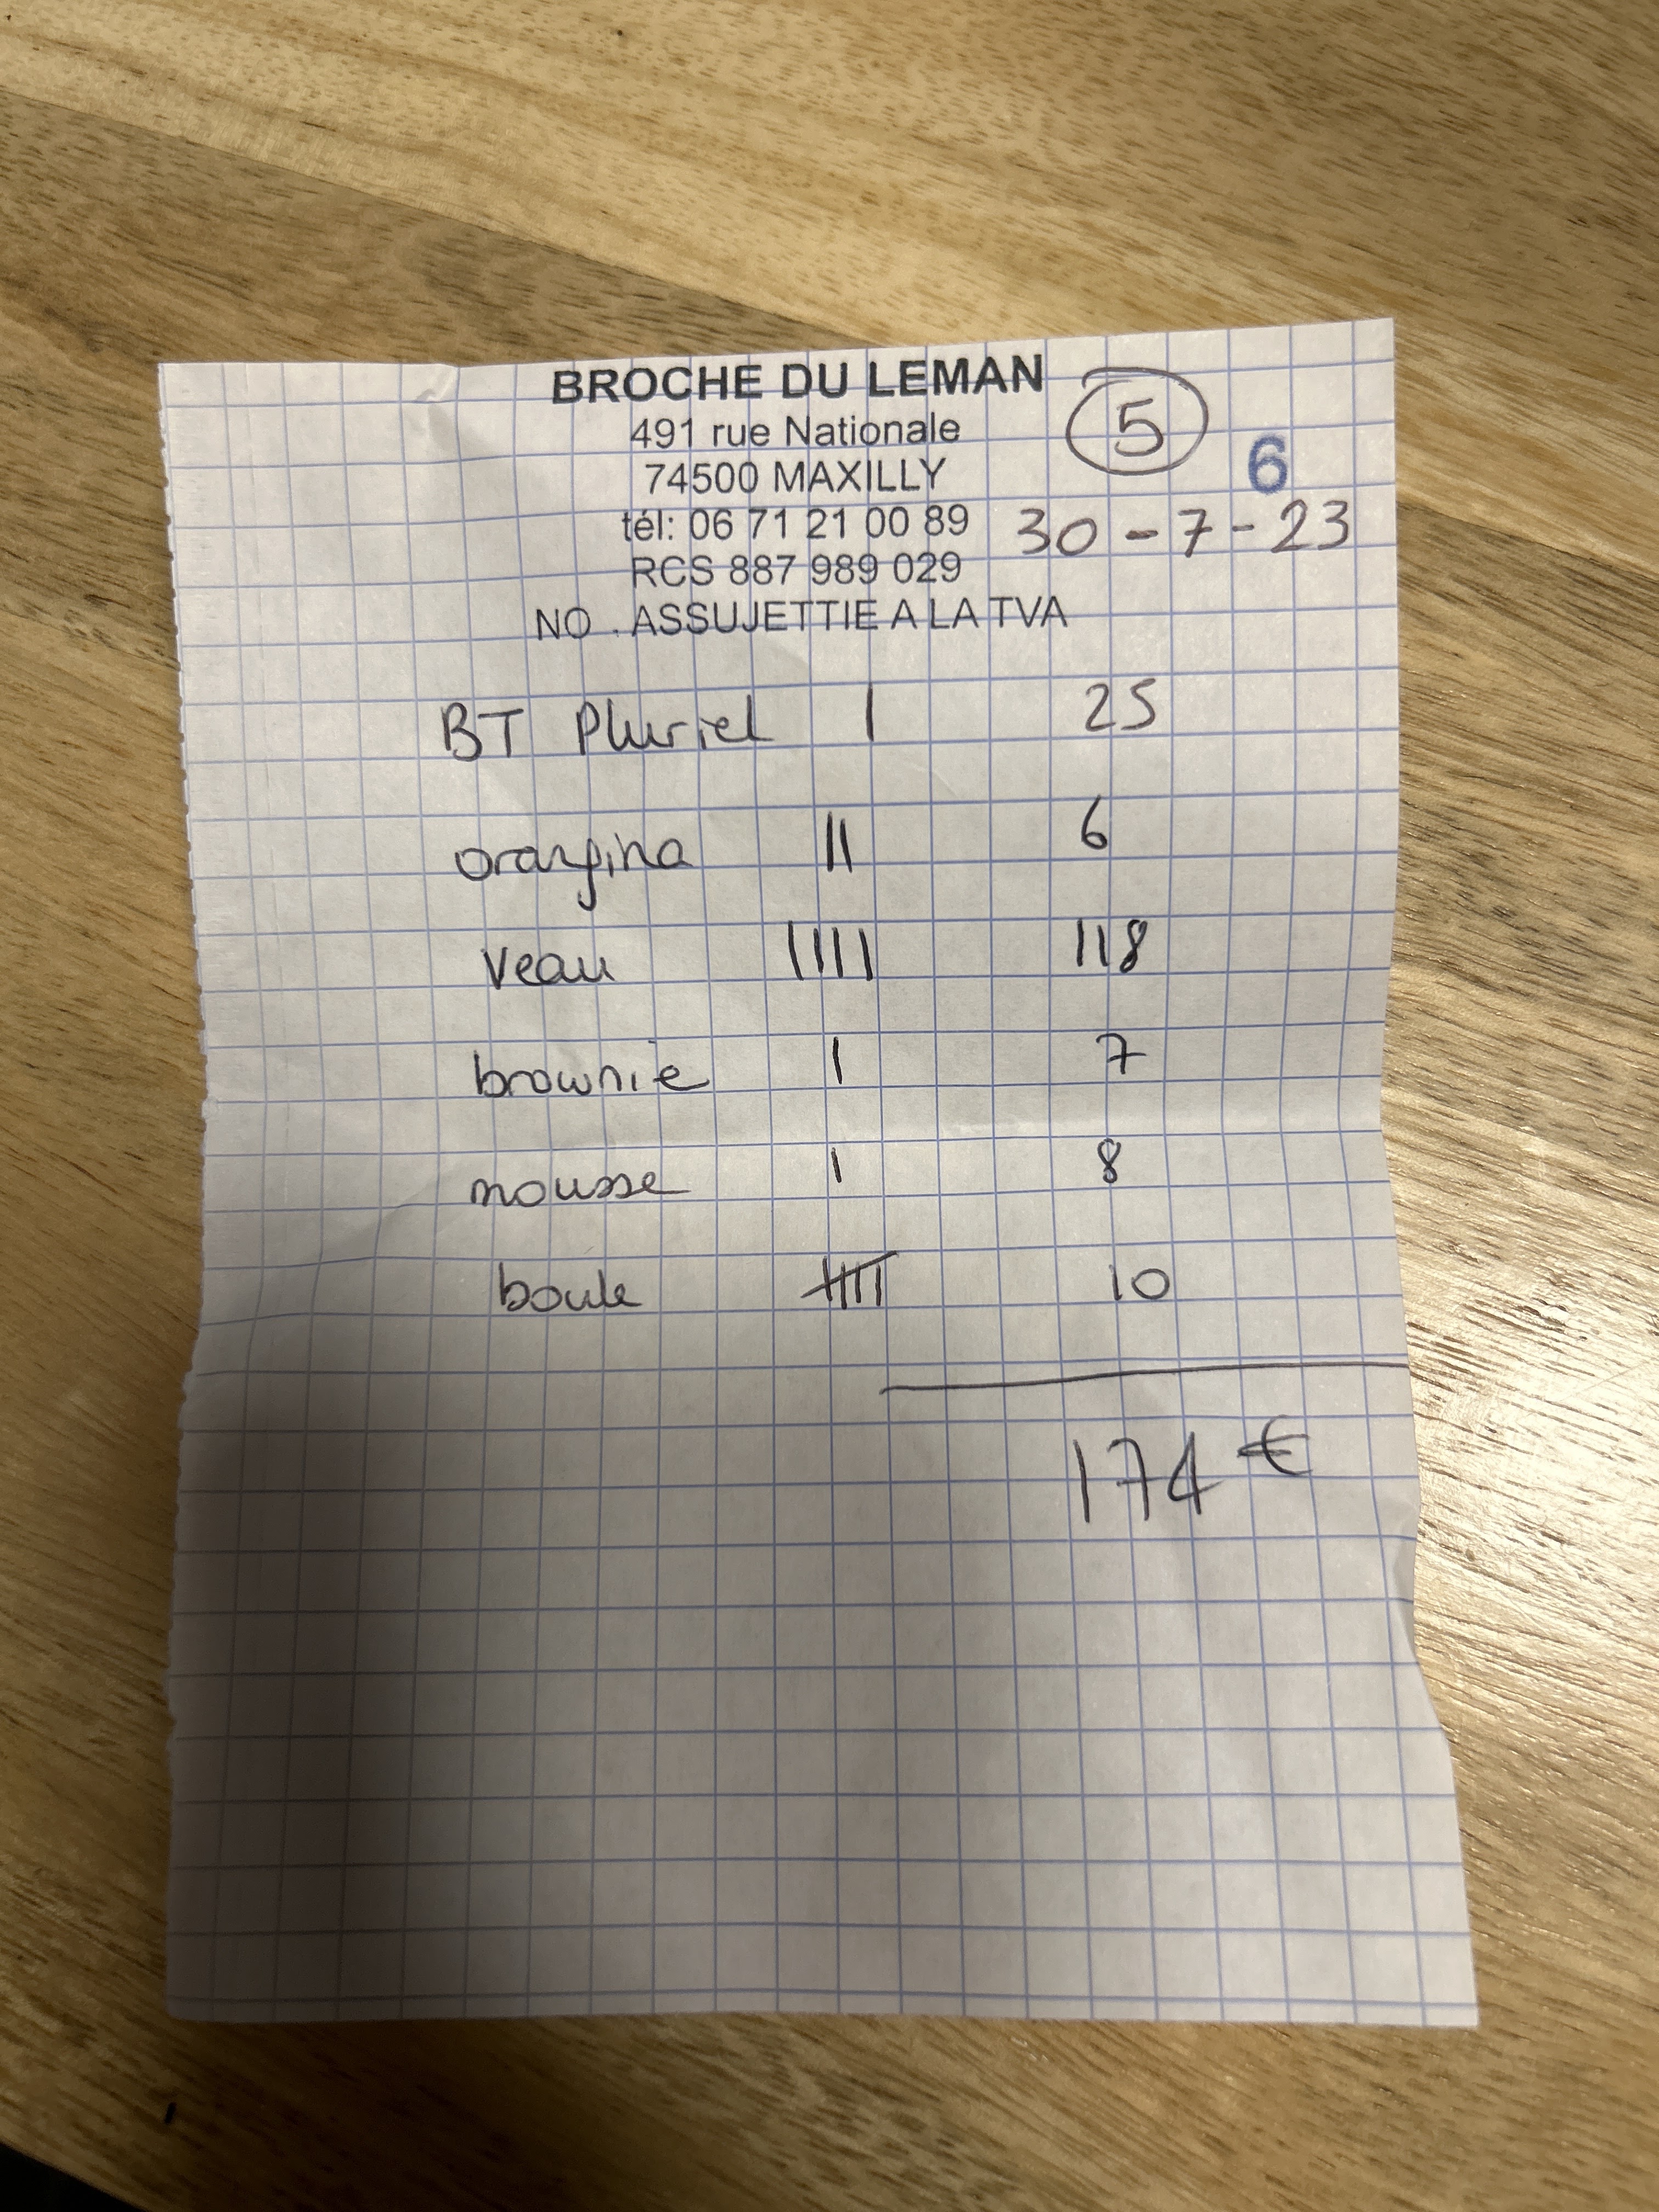 BROCHE DU LEMAN
5
491 rue Nationale
6
74500 MAXILLY
tél: 06 71 21 00 89
30-7-23
RCS 887 989 029
NO . ASSUJETTIE A LA TVA
BT Pluriel | 25
orangina || 6
veau |||| 118
brownie | 7
mousse | 8
boule |||| 10
174 €